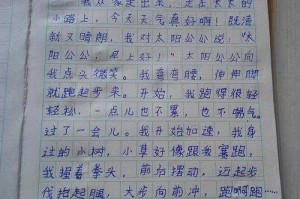 我从家走出来，走在长长的
小路上，今天天气真好啊！既清
新又晴朗，我对太阳公公说："太
阳公公，早上好！"太阳公公向
我点头微笑。我弯弯腰，伸伸脚
就跑起步来。开始，我跑得很轻
轻松，一点儿也不累，也不喘气。
过了一会儿。我开始加速，我身
边的小树，小草好像跟我赛跑。
我握着拳头，前后摆动，迈起步
伐抬起腿，大步向前冲，跑啊跑……